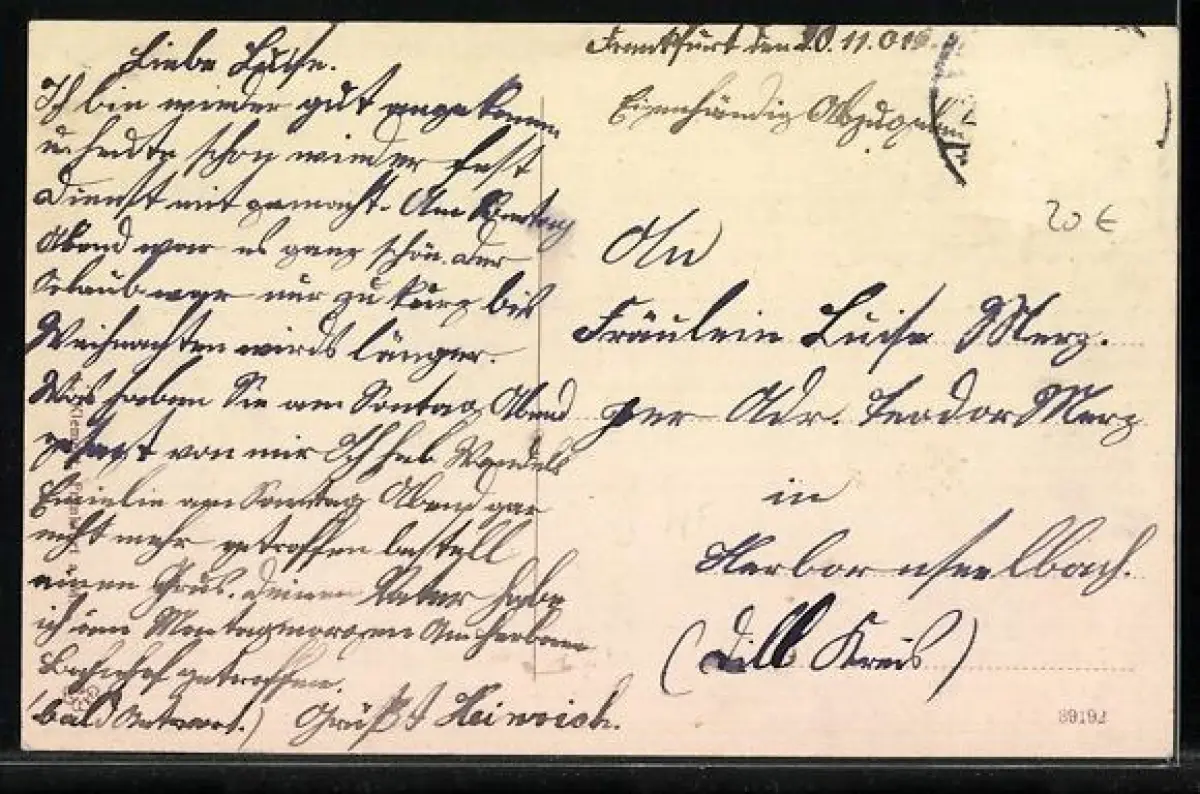 Liebe Luise.
Ich bin wieder gut angekommen
u. heute schon wieder fest
Dienst mit gemacht. Am Sontag
Abend war es ganz schön. Der
Urlaub war nur zu kurz bis
Weihnachten wirds länger.
Was haben Sie am Sontag Abend
gesagt von mir Ich hab Wendels
Emielie am Sonntag Abend gar
nicht mehr getroffen bestell
einen Grus. Deinen Vater habe
ich am Montagmorgen Am Herborn
Bahnhof getroffen.
(bald Antwort.) Grüßt Heinrich.
Frankfurt den 20.11.01
Eigenhändig
20 €
An
Fräulein Luise Merz.
per Adr. Teodor Merz
in
Herbornseelbach.
(Dill Kreis)
89192